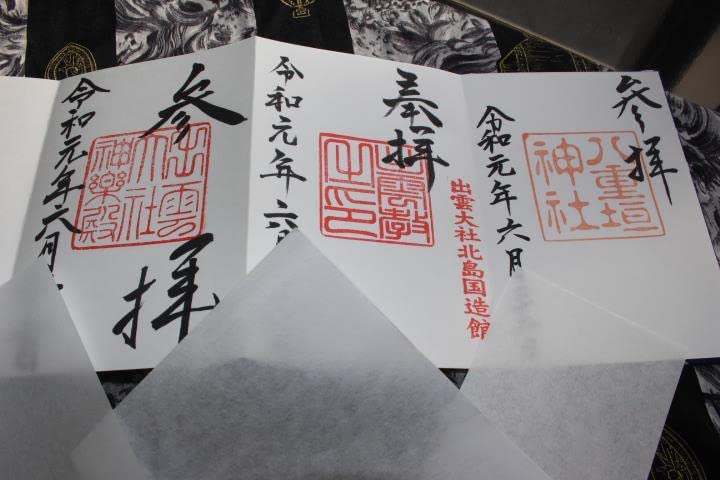 参拝
八重垣
神社
令和元年六月
出雲大社北島国造館
奉拝
出雲教
之印
令和元年六月
参拝
出雲
大社
神樂殿
令和元年六月